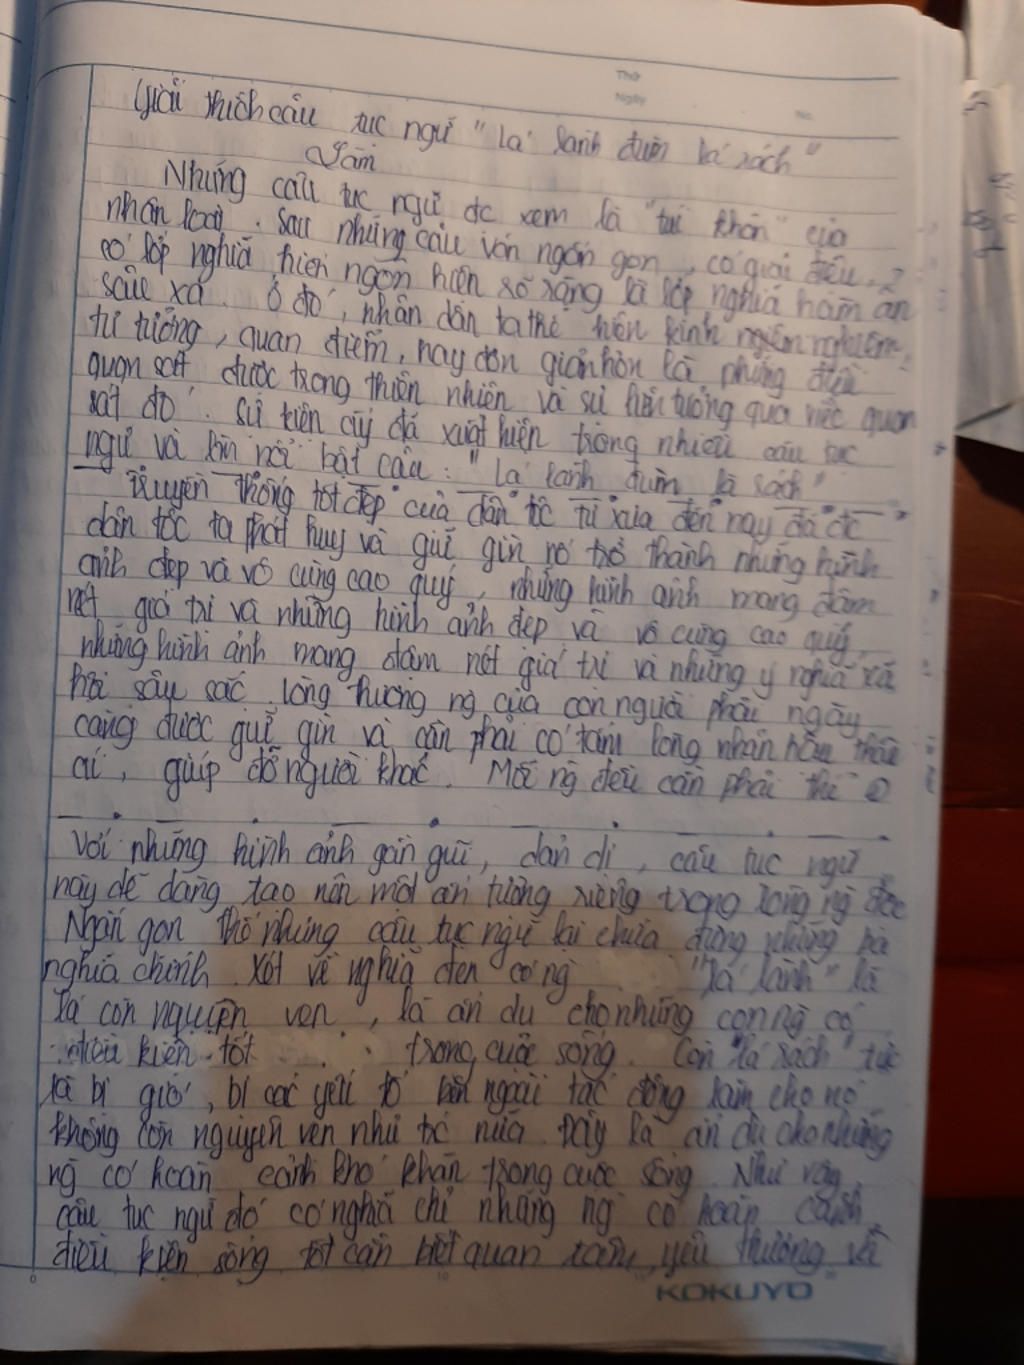 Thứ
Ngày
No.
Giải thích câu tục ngữ "Lá lành đùm lá rách"
Làm
Những câu tục ngữ đc xem là "túi khôn" của
nhân loại. Sau những câu văn ngắn gọn, có giai điệu, 2
có lớp nghĩa hiển ngôn hiện rõ ràng là lớp nghĩa hàm ẩn
sâu xa. Ở đó, nhân dân ta thể hiện kinh nghiệm,
tư tưởng, quan điểm, hay đơn giản hơn là những điều
quan sát được trong thiên nhiên và sự liên tưởng qua việc quan
sát đó. Sự kiện ấy đã xuất hiện trong nhiều câu tục
ngữ và nổi bật câu: "Lá lành đùm lá rách"
Truyền thống tốt đẹp của dân tộc từ xưa đến nay đã đc
dân tộc ta phát huy và giữ gìn nó trở thành những hình
ảnh đẹp và vô cùng cao quý, những hình ảnh mang đậm
nét giá trị và những hình ảnh đẹp và vô cùng cao quý,
những hình ảnh mang đậm nét giá trị và những ý nghĩa xã
hội sâu sắc, lòng thương ng của con người phải ngày
càng được giữ gìn và cần phải có tấm lòng nhân hậu thân
ái, giúp đỡ người khác. Mỗi ng đều cần phải thế
Với những hình ảnh gần gũi, dản dị, câu tục ngữ
này dễ dàng tạo nên một ấn tượng riêng trong lòng ng đọc
Ngắn gọn thế nhưng câu tục ngữ lại chứa đựng những
nghĩa chính. Xét về nghĩa đen có ng "lá lành" là
lá còn nguyên vẹn, là ẩn dụ cho những con ng có
điều kiện tốt trong cuộc sống. Còn "lá rách" tức
là bị gió, bị các yếu tố bên ngoài tác động làm cho nó
không còn nguyên vẹn như trc nữa. Đây là ẩn dụ cho những
ng có hoàn cảnh khó khăn trong cuộc sống. Như vậy,
câu tục ngữ đó có nghĩa chỉ những ng có hoàn cảnh,
điều kiện sống tốt cần biết quan tâm, yêu thương và
KOKUYO